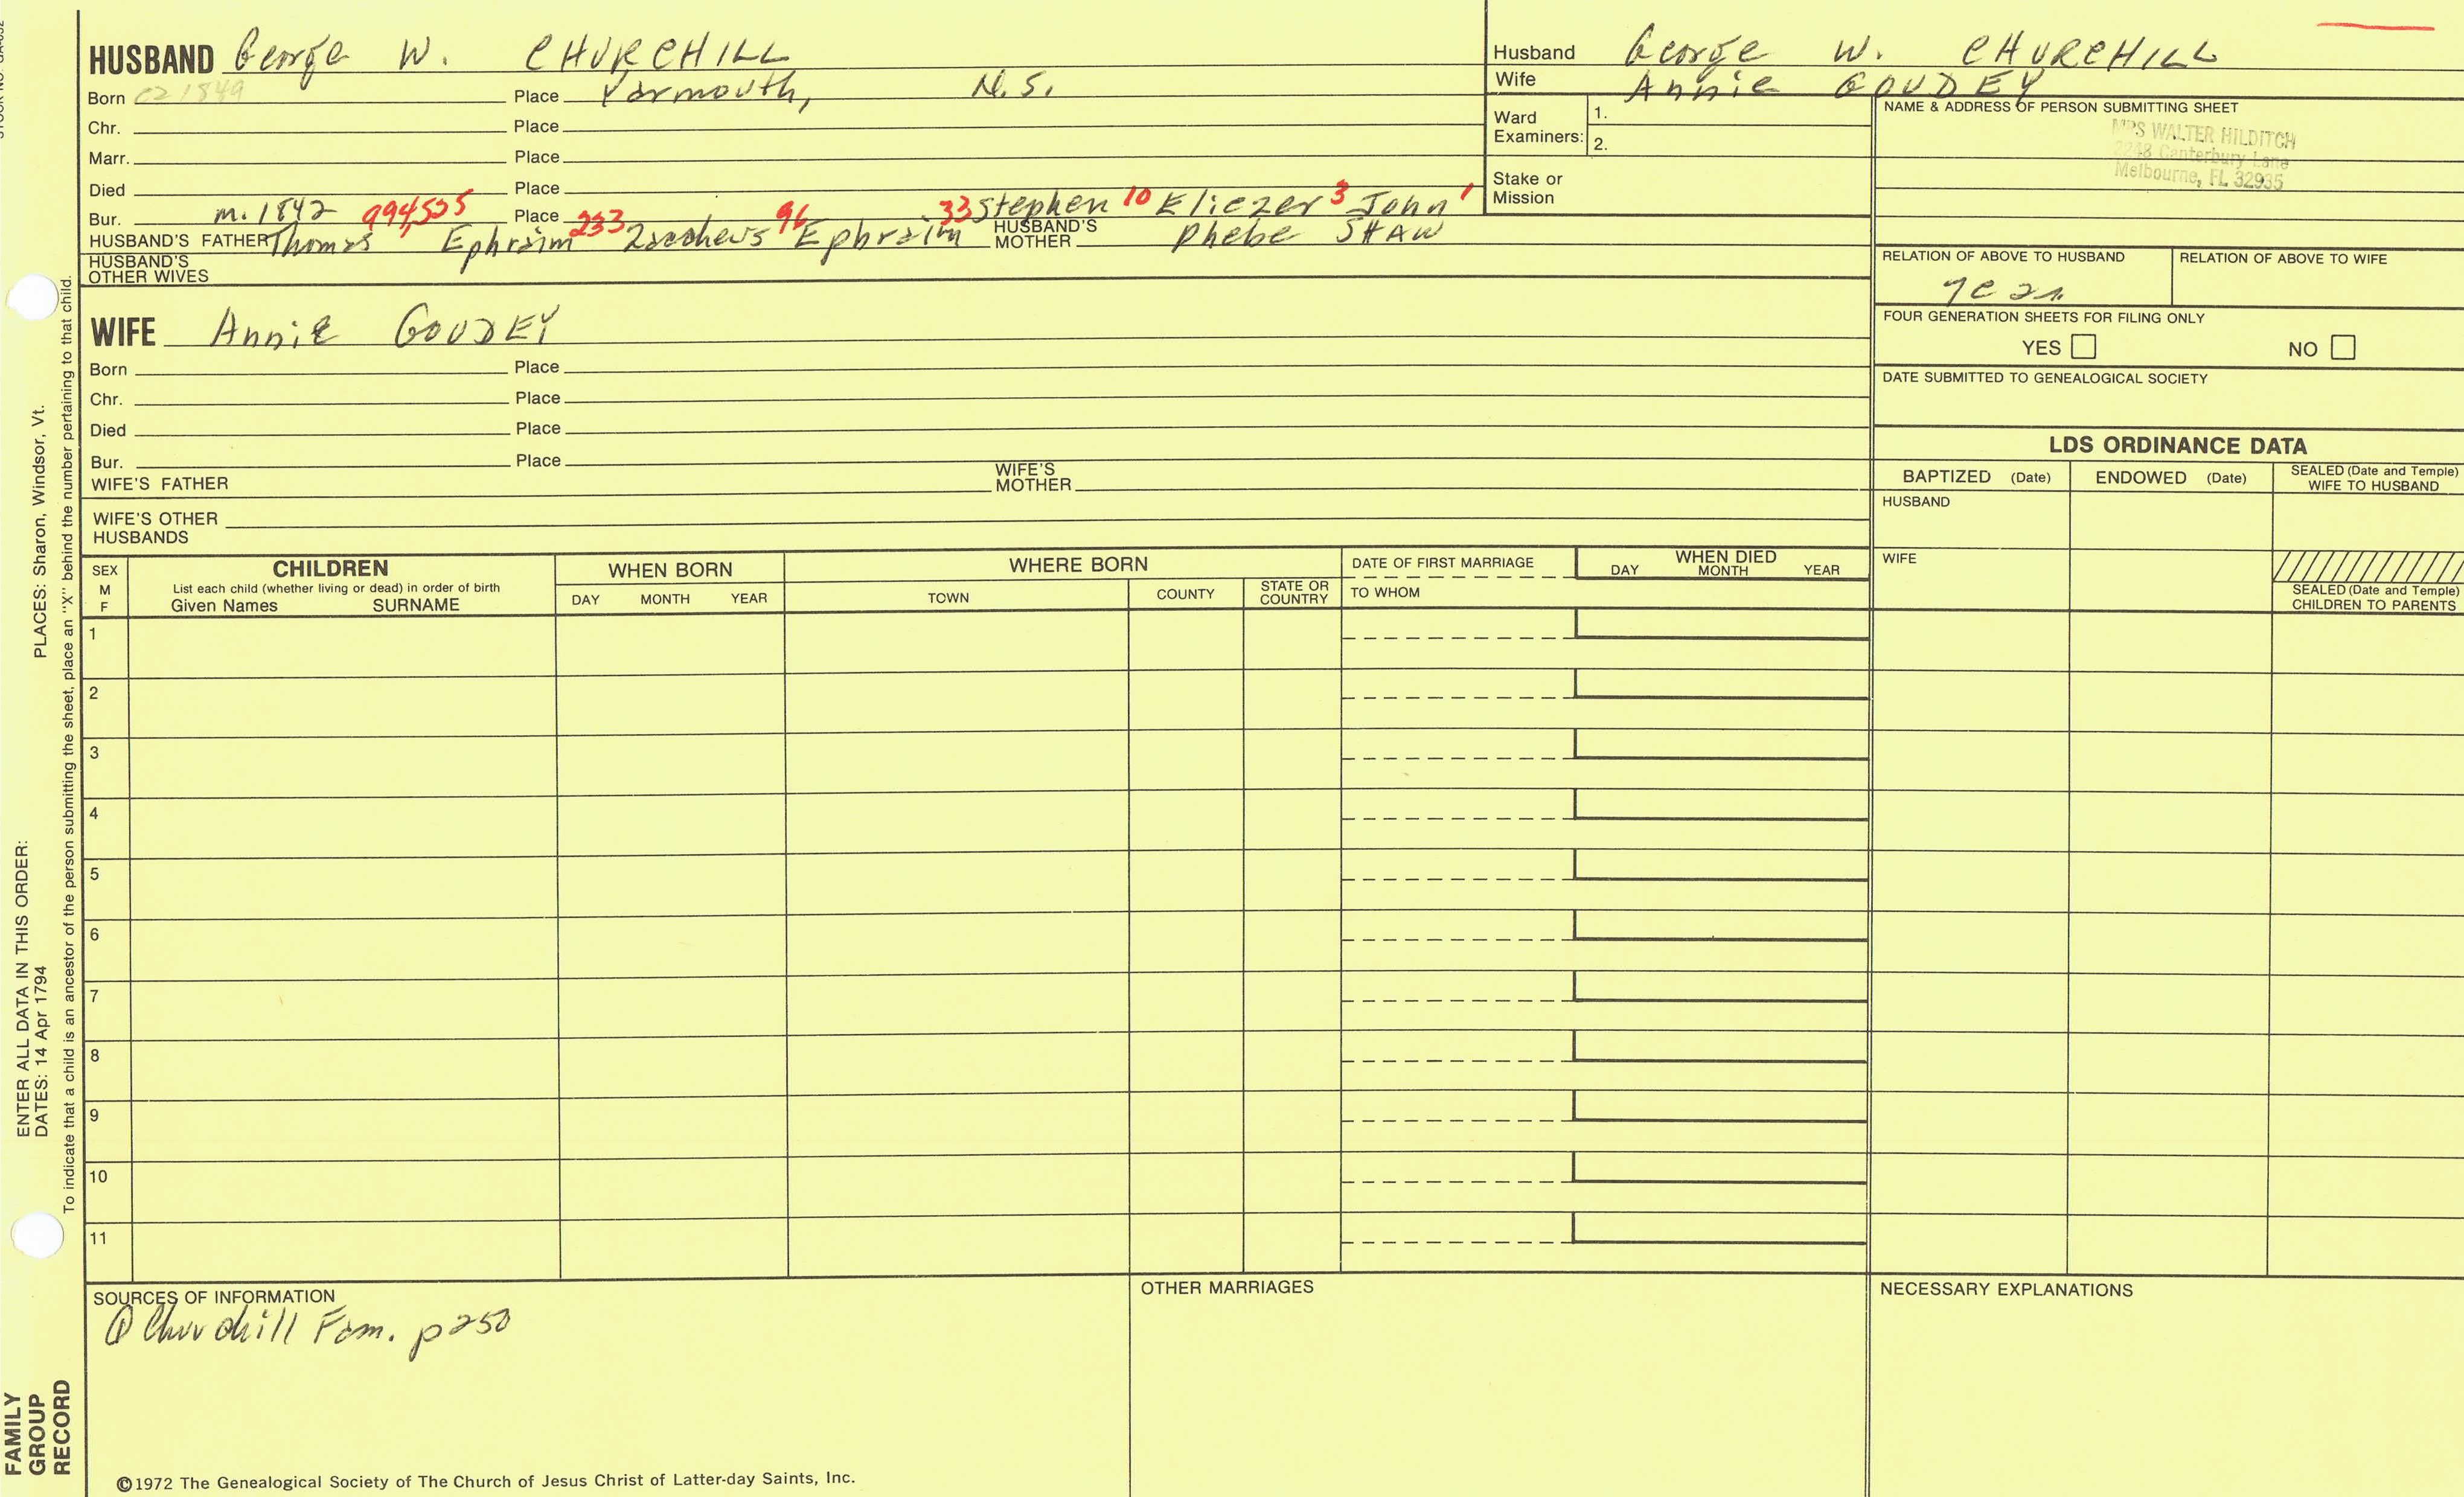 HUSBAND George W. CHURCHILL
Born ca 1849 Place Yarmouth, N.S.
Chr. Place
Marr. Place
Died Place
Bur. m. 1842 994,525 Place 33 Stephen 10 Eliezer 3 John 1
HUSBAND'S FATHER Thomas Ephraim 233 Zaccheus 96 Ephraim HUSBAND'S MOTHER Phebe SHAW
HUSBAND'S OTHER WIVES
Husband George W. CHURCHILL
Wife Annie GOUDEY
Ward Examiners: 1.
2.
Stake or Mission
NAME & ADDRESS OF PERSON SUBMITTING SHEET
MRS WALTER HILDITCH
2248 Canterbury Lane
Melbourne, FL 32935
RELATION OF ABOVE TO HUSBAND RELATION OF ABOVE TO WIFE
FOUR GENERATION SHEETS FOR FILING ONLY
YES NO
DATE SUBMITTED TO GENEALOGICAL SOCIETY
WIFE Annie GOUDEY
Born Place
Chr. Place
Died Place
Bur. Place
WIFE'S FATHER WIFE'S MOTHER
WIFE'S OTHER HUSBANDS
LDS ORDINANCE DATA
BAPTIZED (Date) ENDOWED (Date) SEALED (Date and Temple) WIFE TO HUSBAND
HUSBAND
WIFE
SEALED (Date and Temple) CHILDREN TO PARENTS
SEX M F
CHILDREN
List each child (whether living or dead) in order of birth
Given Names SURNAME
WHEN BORN
DAY MONTH YEAR
WHERE BORN
TOWN COUNTY STATE OR COUNTRY
DATE OF FIRST MARRIAGE
TO WHOM
WHEN DIED
DAY MONTH YEAR
1
2
3
4
5
6
7
8
9
10
11
SOURCES OF INFORMATION
① Churchill Fam. p250
OTHER MARRIAGES
NECESSARY EXPLANATIONS
©1972 The Genealogical Society of The Church of Jesus Christ of Latter-day Saints, Inc.
ENTER ALL DATA IN THIS ORDER:
DATES: 14 Apr 1794 PLACES: Sharon, Windsor, Vt.
To indicate that a child is an ancestor of the person submitting the sheet, place an "X" behind the number pertaining to that child.
FAMILY
GROUP
RECORD